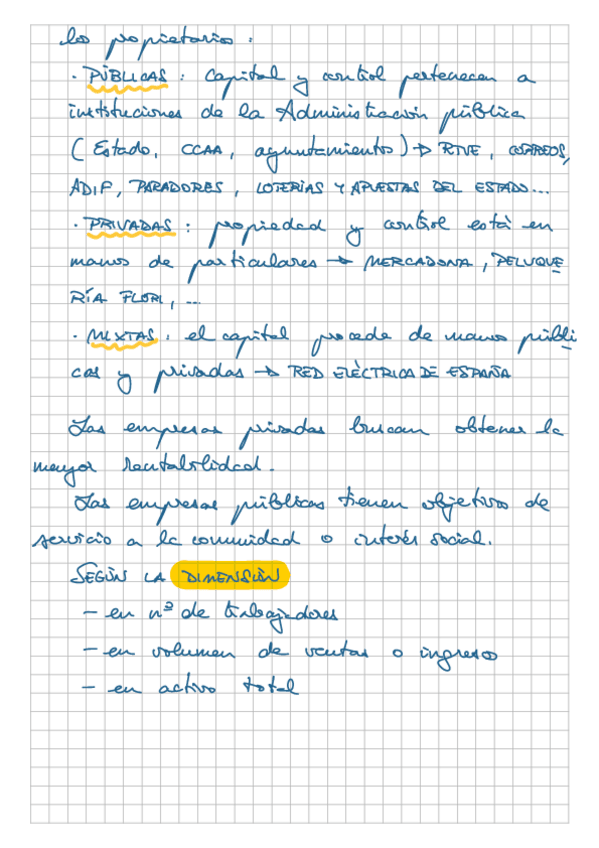 los propietarios :
· PÚBLICAS : Capital y control pertenecen a
instituciones de la Administración pública
( Estado, CCAA, ayuntamientos) → RTVE, CORREOS,
ADIF, PARADORES, LOTERÍAS Y APUESTAS DEL ESTADO...
· PRIVADAS : propiedad y control está en
manos de particulares → MERCADONA, PELUQUE
RÍA FLORI, ...
· MIXTAS : el capital procede de manos públi
cas y privadas → RED ELÉCTRICA DE ESPAÑA
Las empresas privadas buscan obtener la
mayor rentabilidad.
Las empresas públicas tienen objetivos de
servicio a la comunidad o interés social.
SEGÚN LA DIMENSIÓN
- en nº de trabajadores
- en volumen de ventas o ingresos
- en activo total